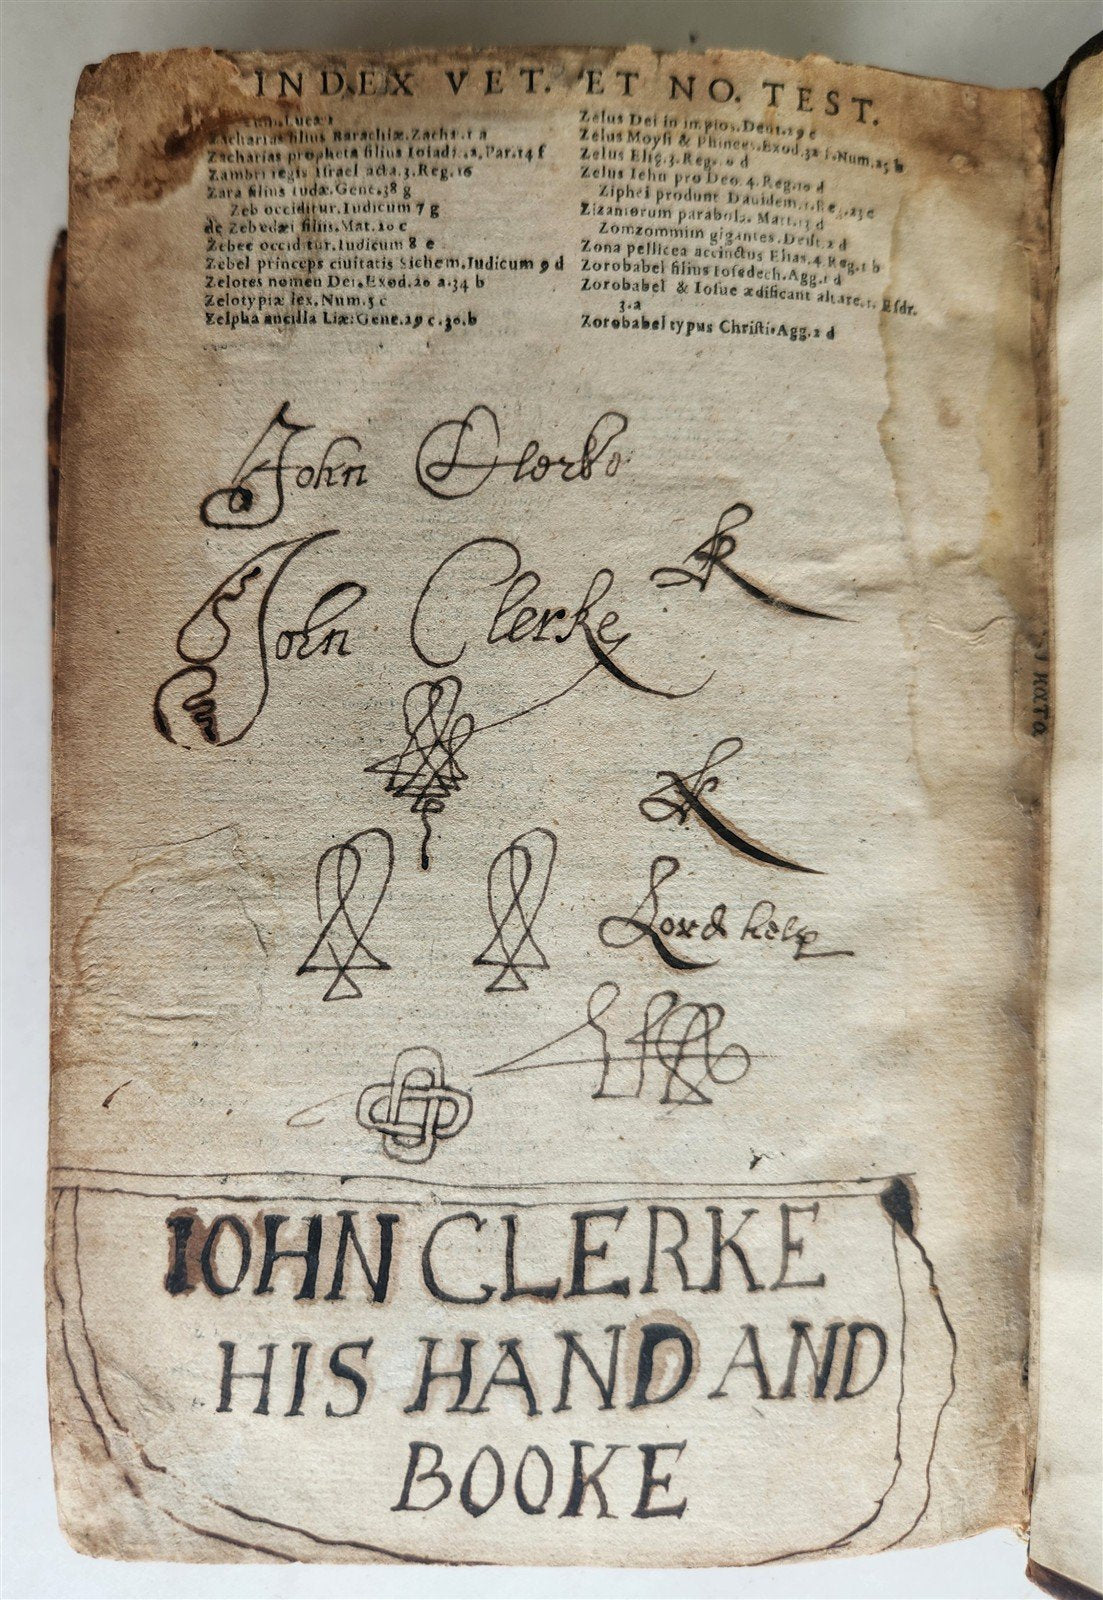 INDEX VET. ET NO. TEST.
Lucæ 1
Zacharias filius Barachiæ. Zacha.1 a
Zacharias propheta filius Ioiadæ.2. Par.14 f
Zambri regis Israel acta.3. Reg.16
Zara filius Iudæ. Gene.38 g
Zeb occiditur. Iudicum 7 g
de Zebedæi filiis. Mat.20 c
Zebee occiditur. Iudicum 8 e
Zebel princeps ciuitatis Sichem. Iudicum 9 d
Zelotes nomen Dei. Exod.20 a.34 b
Zelotypiæ lex. Num.5 c
Zelpha ancilla Liæ. Gene.29 c.30.b
Zelus Dei in impios. Deut.29 c
Zelus Moysi & Phinees. Exod.32 f. Num.25 b
Zelus Eliæ.3. Reg.
Zelus Iehu pro Deo.4. Reg.10 d
Ziphei produnt Dauidem.1. Reg.23 c
Zizaniorum parabola. Matt.13 d
Zomzommim gigantes. Deut.2 d
Zona pellicea accinctus Elias.4 Reg.1 b
Zorobabel filius Iosedech. Agg.1 d
Zorobabel & Iosue ædificant altare.1. Esdr.
3.a
Zorobabel typus Christi. Agg.2 d
John Clerke
k
John Clerke
k
Lord help
IOHN CLERKE
HIS HAND AND
BOOKE